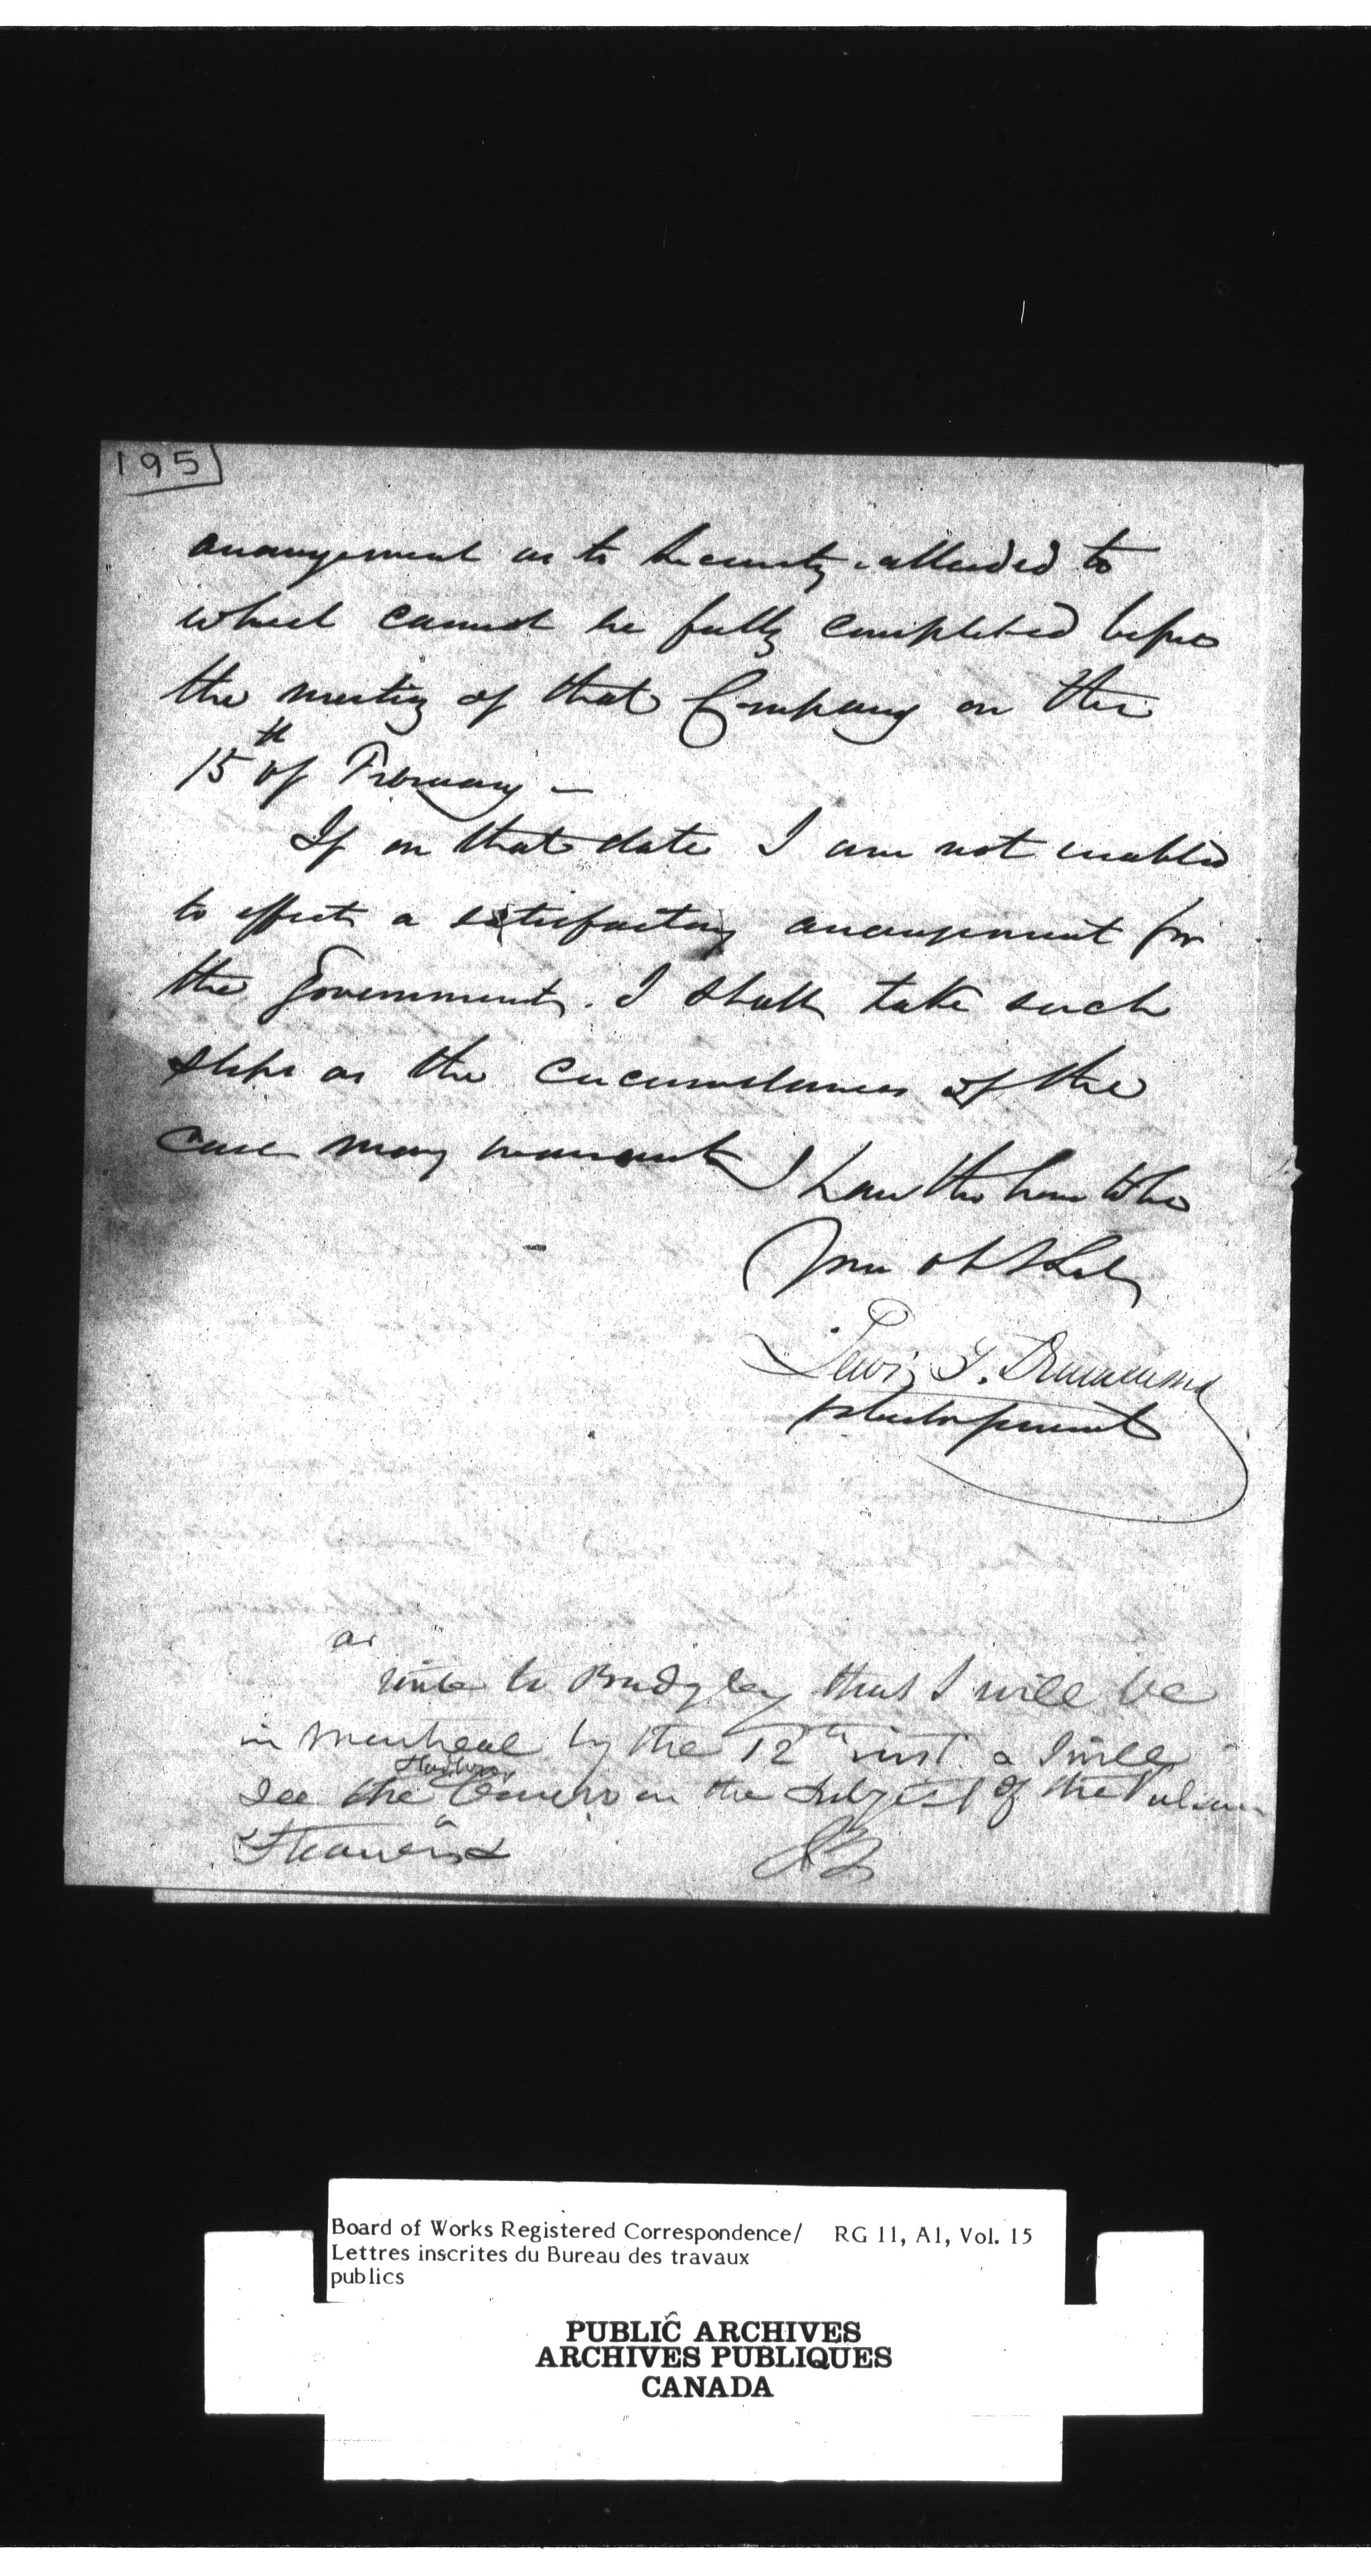 195
arrangement as to security alluded to
which cannot be fully completed before
the meeting of that Company on the
15th of February —
If on that date I am not enabled
to effect a satisfactory arrangement for
the Government. I shall take such
steps as the circumstances of the
case may warrant I have the honor to be
Your obt Sert
Lewis T. Drummond
as
write to Badgley that I will be
in Montreal by the 12th inst. & I will
Harbour
see the on the subject of the Vulcan
Steamer
Board of Works Registered Correspondence/ RG 11, A1, Vol. 15
Lettres inscrites du Bureau des travaux
publics
PUBLIC ARCHIVES
ARCHIVES PUBLIQUES
CANADA